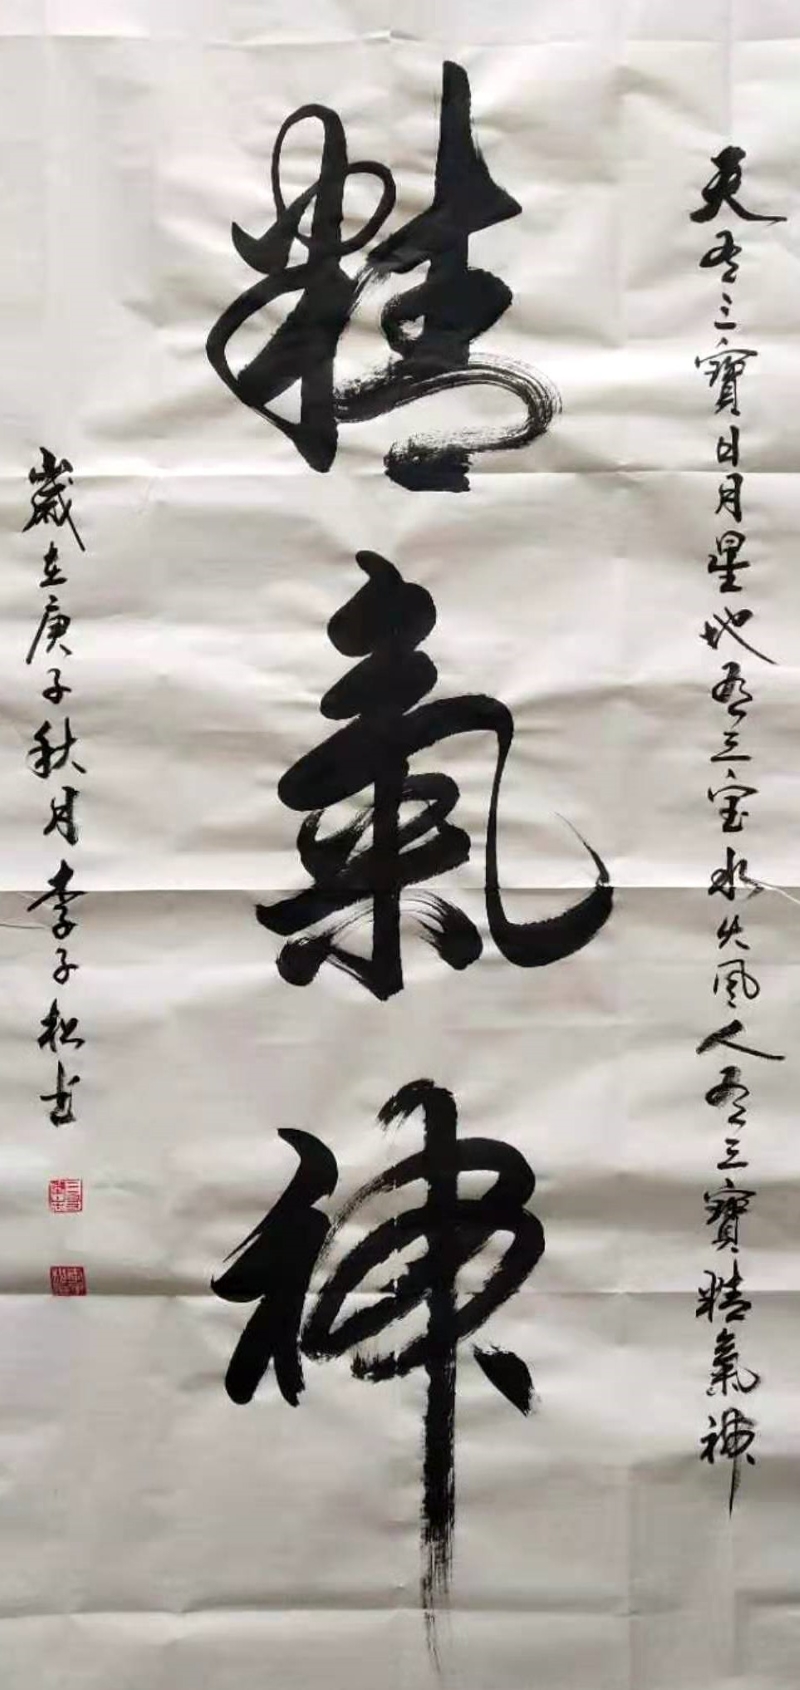 天有三寶日月星地有三宝水火风人有三寶精氣神
精氣神
歲在庚子秋月李子松书